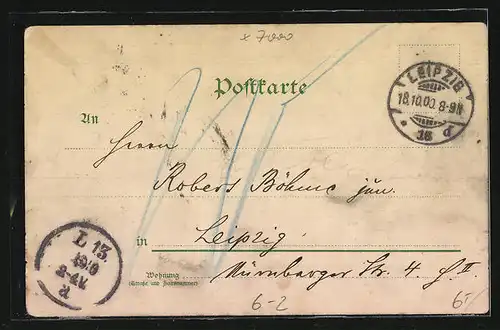 x 7000
Postkarte
LEIPZIG
18.10.00. 8-9N
* 13 d
An
Herrn
Robert Böhme jun.
in Leipzig
Wohnung
(Straße und Hausnummer)
Nürnberger Str. 4. H II
L 13.
2-4V.
6-2